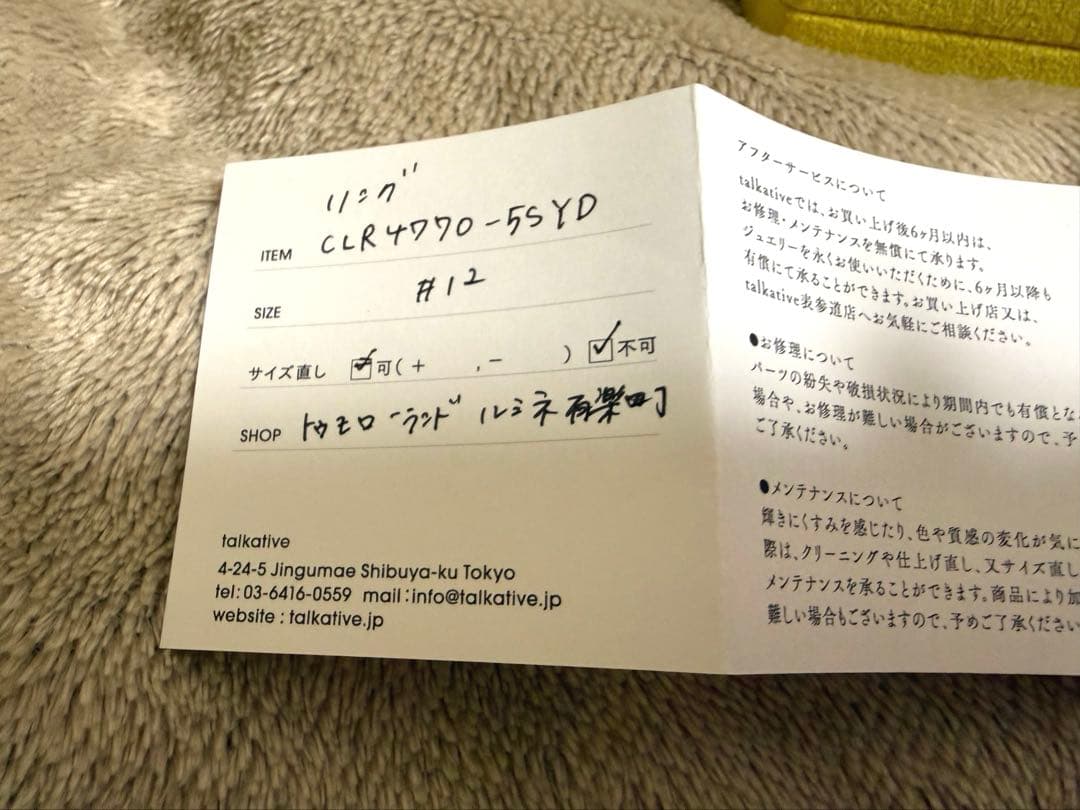 リング
ITEM CLR4770-5SYD
SIZE #12
サイズ直し ☑可(+ , - ) ☑不可
SHOP トゥモローランド ルミネ有楽町
talkative
4-24-5 Jingumae Shibuya-ku Tokyo
tel:03-6416-0559 mail:info@talkative.jp
website : talkative.jp
アフターサービスについて
talkativeでは、お買い上げ後6ヶ月以内は、
お修理・メンテナンスを無償にて承ります。
ジュエリーを永くお使いいただくために、6ヶ月以降も
有償にて承ることができます。お買い上げ店又は、
talkative表参道店へお気軽にご相談ください。
●お修理について
パーツの紛失や破損状況により期間内でも有償とな
場合や、お修理が難しい場合がございますので、予
ご了承ください。
●メンテナンスについて
輝きにくすみを感じたり、色や質感の変化が気に
際は、クリーニングや仕上げ直し、又サイズ直し
メンテナンスを承ることができます。商品により加
難しい場合もございますので、予めご了承ください